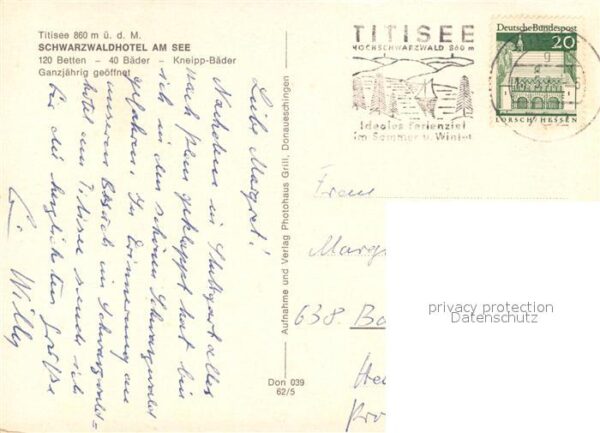 Titisee 860 m ü. d. M.
SCHWARZWALDHOTEL AM SEE
120 Betten – 40 Bäder – Kneipp-Bäder
Ganzjährig geöffnet
TITISEE
HOCHSCHWARZWALD 860 m
Ideales Ferienziel
im Sommer u. Winter
Deutsche Bundespost
20
LORSCH/HESSEN
Liebe Margret!
Nachdem in Stuttgart alles
nach Plan geklappt hat bin
ich in den schönen Schwarzwald
gefahren. In Erinnerung an
unseren Besuch im Schwarzwald=
hotel am Titisee sende ich
Dir die herzlichsten Grüße
Dein Willy
Aufnahme und Verlag Photohaus Grill, Donaueschingen
Don 039
62/5
Frau
Marg
638. Ba
privacy protection
Datenschutz